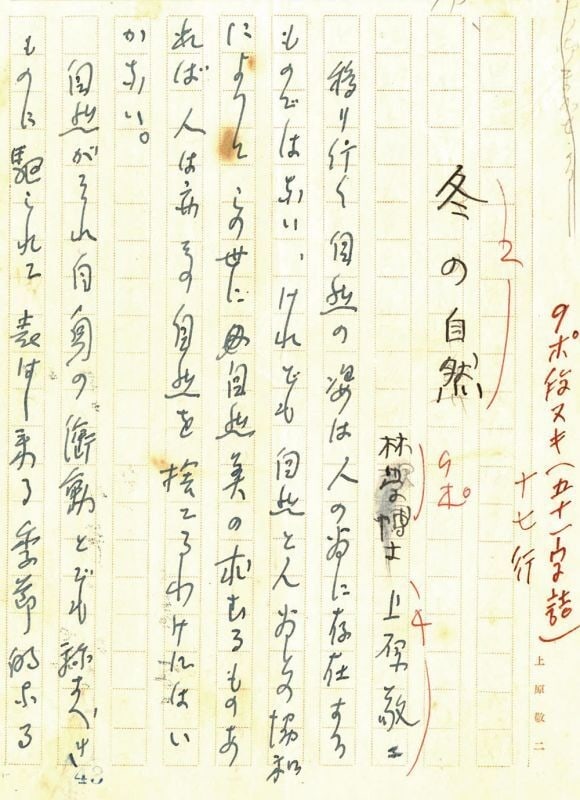 9ポ段ヌキ(五十一字詰)
十七行
上原敬二
2
冬の自然
9ポ
4
林学博士 上原敬二
移り行く自然の姿は人の為に存在する
ものではない、けれども自然と人為との協和
によってこの世に自然美の求むるものあ
れば人は亦その自然を捨てるわけにはい
かない。
自然がそれ自身の衝動とでも称すべき
ものに駆られて表はし来る季節的なる